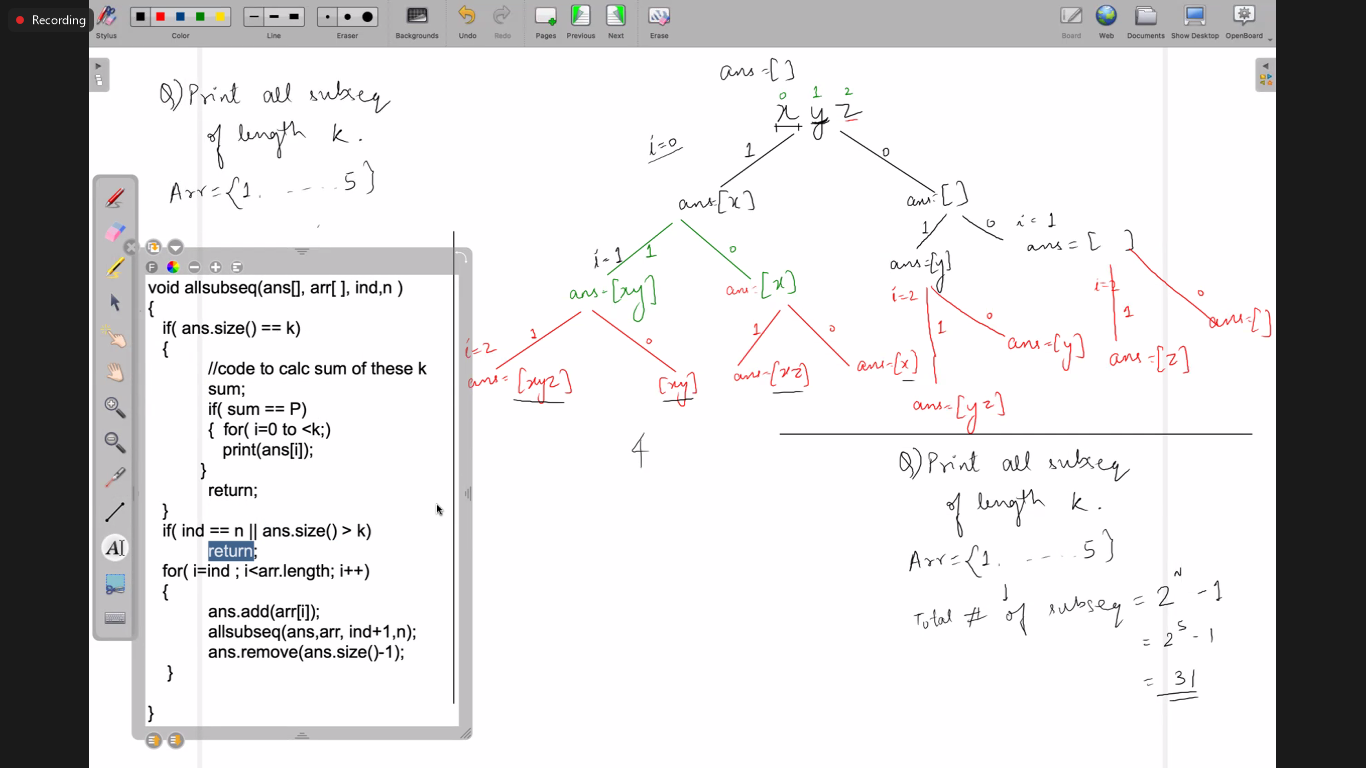 Recording
Stylus
Color
Line
Eraser
Backgrounds
Undo
Redo
Pages
Previous
Next
Erase
Board
Web
Documents
Show Desktop
OpenBoard
Q) Print all subseq
of length k.
Arr={1. - ....5}
void allsubseq(ans[], arr[ ], ind,n )
{
if( ans.size() == k)
{
//code to calc sum of these k
sum;
if( sum == P)
{ for( i=0 to <k;)
print(ans[i]);
}
return;
}
if( ind == n || ans.size() > k)
return;
for( i=ind ; i<arr.length; i++)
{
ans.add(arr[i]);
allsubseq(ans,arr, ind+1,n);
ans.remove(ans.size()-1);
}
}
ans=[]
0 1 2
x y z
i=0
1 0
ans=[x] ans=[ ]
i=1 1 0 1 0 i=1
ans=[xy] ans=[x] ans=[y] ans=[ ]
i=2 1 0 1 0 i=2 1 0 i=2 1 0
ans=[xyz] [xy] ans=[xz] ans=[x] ans=[yz] ans=[y] ans=[z] ans=[]
4
Q) Print all subseq
of length k.
Arr={1. - ....5}
Total # of subseq = 2^N -1
= 2^5 -1
= 31